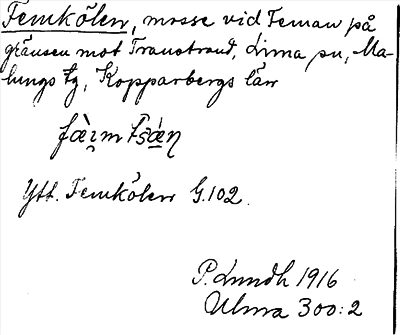 Femkölen, mosse vid Feman på
gränsen mot Transtrand, Lima sn, Ma-
lungs tg, Kopparbergs län
Ytt. Femkölen G.102.
P. Lundh 1916
Ulma 300:2